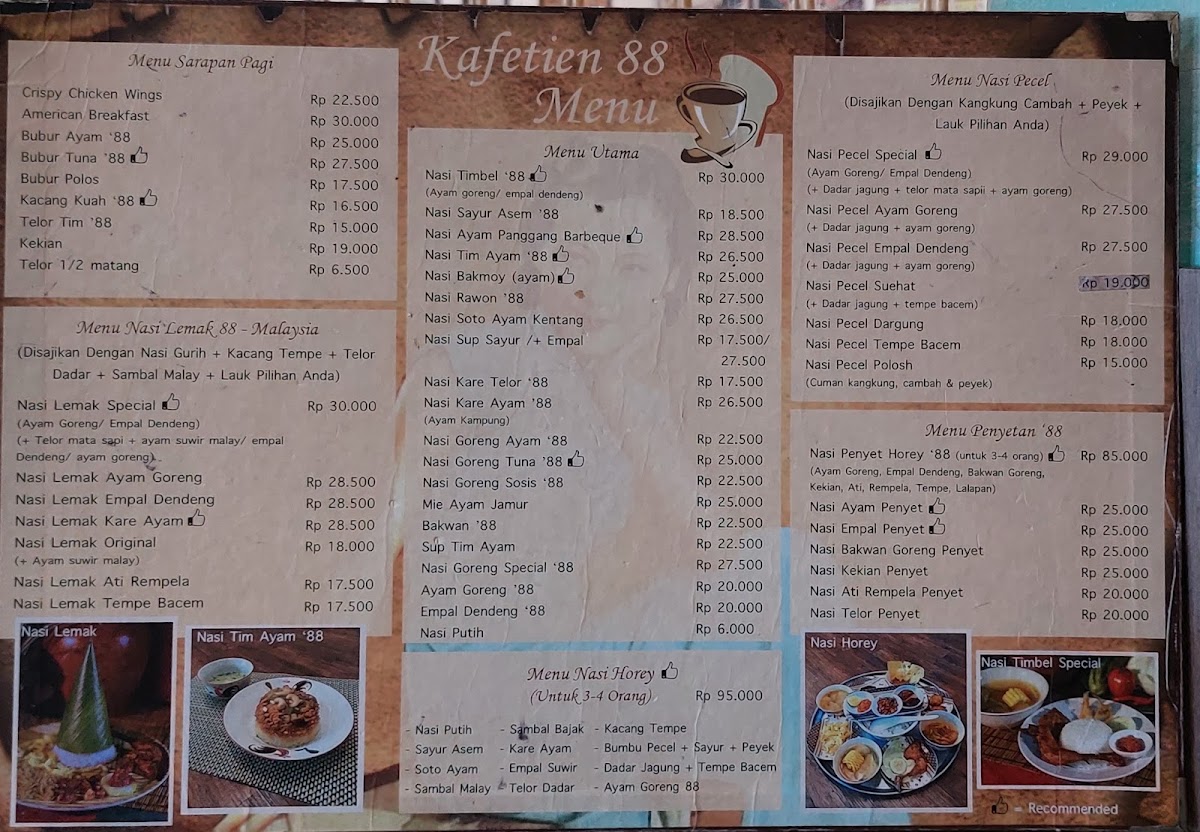 Kafetien 88
Menu
Menu Sarapan Pagi
Crispy Chicken Wings Rp 22.500
American Breakfast Rp 30.000
Bubur Ayam ‘88 Rp 25.000
Bubur Tuna ‘88 Rp 27.500
Bubur Polos Rp 17.500
Kacang Kuah ‘88 Rp 16.500
Telor Tim ‘88 Rp 15.000
Kekian Rp 19.000
Telor 1/2 matang Rp 6.500
Menu Nasi Lemak 88 - Malaysia
(Disajikan Dengan Nasi Gurih + Kacang Tempe + Telor
Dadar + Sambal Malay + Lauk Pilihan Anda)
Nasi Lemak Special Rp 30.000
(Ayam Goreng/ Empal Dendeng)
(+ Telor mata sapi + ayam suwir malay/ empal
Dendeng/ ayam goreng)
Nasi Lemak Ayam Goreng Rp 28.500
Nasi Lemak Empal Dendeng Rp 28.500
Nasi Lemak Kare Ayam Rp 28.500
Nasi Lemak Original Rp 18.000
(+ Ayam suwir malay)
Nasi Lemak Ati Rempela Rp 17.500
Nasi Lemak Tempe Bacem Rp 17.500
Nasi Lemak
Nasi Tim Ayam ‘88
Menu Utama
Nasi Timbel ‘88 Rp 30.000
(Ayam goreng/ empal dendeng)
Nasi Sayur Asem ‘88 Rp 18.500
Nasi Ayam Panggang Barbeque Rp 28.500
Nasi Tim Ayam ‘88 Rp 26.500
Nasi Bakmoy (ayam) Rp 25.000
Nasi Rawon ‘88 Rp 27.500
Nasi Soto Ayam Kentang Rp 26.500
Nasi Sup Sayur /+ Empal Rp 17.500/
27.500
Nasi Kare Telor ‘88 Rp 17.500
Nasi Kare Ayam ‘88 Rp 26.500
(Ayam Kampung)
Nasi Goreng Ayam ‘88 Rp 22.500
Nasi Goreng Tuna ‘88 Rp 25.000
Nasi Goreng Sosis ‘88 Rp 22.500
Mie Ayam Jamur Rp 25.000
Bakwan ‘88 Rp 22.500
Sup Tim Ayam Rp 22.500
Nasi Goreng Special ‘88 Rp 27.500
Ayam Goreng ‘88 Rp 20.000
Empal Dendeng ‘88 Rp 20.000
Nasi Putih Rp 6.000
Menu Nasi Horey
(Untuk 3-4 Orang) Rp 95.000
- Nasi Putih - Sambal Bajak - Kacang Tempe
- Sayur Asem - Kare Ayam - Bumbu Pecel + Sayur + Peyek
- Soto Ayam - Empal Suwir - Dadar Jagung + Tempe Bacem
- Sambal Malay - Telor Dadar - Ayam Goreng 88
Menu Nasi Pecel
(Disajikan Dengan Kangkung Cambah + Peyek +
Lauk Pilihan Anda)
Nasi Pecel Special Rp 29.000
(Ayam Goreng/ Empal Dendeng)
(+ Dadar jagung + telor mata sapii + ayam goreng)
Nasi Pecel Ayam Goreng Rp 27.500
(+ Dadar jagung + ayam goreng)
Nasi Pecel Empal Dendeng Rp 27.500
(+ Dadar jagung + ayam goreng)
Nasi Pecel Suehat Rp 19.000
(+ Dadar jagung + tempe bacem)
Nasi Pecel Dargung Rp 18.000
Nasi Pecel Tempe Bacem Rp 18.000
Nasi Pecel Polosh Rp 15.000
(Cuman kangkung, cambah & peyek)
Menu Penyetan ‘88
Nasi Penyet Horey ‘88 (untuk 3-4 orang) Rp 85.000
(Ayam Goreng, Empal Dendeng, Bakwan Goreng,
Kekian, Ati, Rempela, Tempe, Lalapan)
Nasi Ayam Penyet Rp 25.000
Nasi Empal Penyet Rp 25.000
Nasi Bakwan Goreng Penyet Rp 25.000
Nasi Kekian Penyet Rp 25.000
Nasi Ati Rempela Penyet Rp 20.000
Nasi Telor Penyet Rp 20.000
Nasi Horey
Nasi Timbel Special
= Recommended